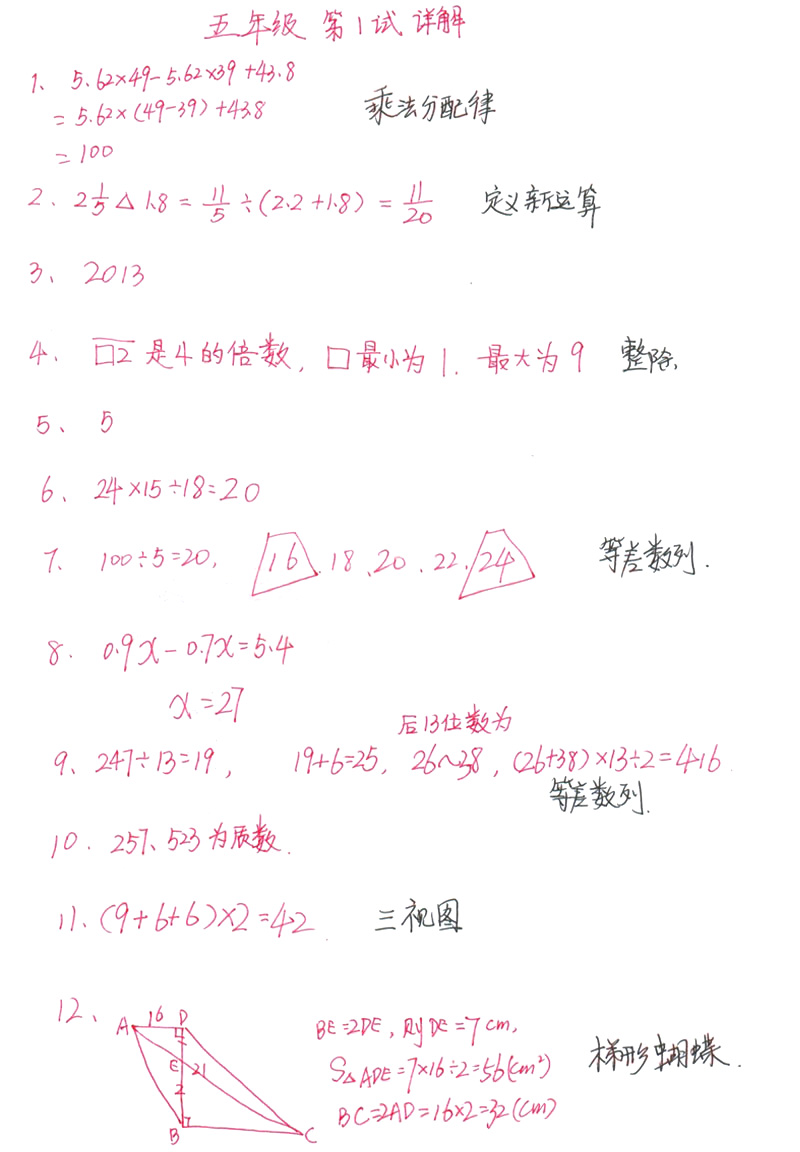 五年级 第1试 详解
1、 5.62×49-5.62×39+43.8
=5.62×(49-39)+43.8 乘法分配律
=100
2、 2 1/5 △ 1.8 = 11/5 ÷(2.2+1.8) = 11/20 定义新运算
3、 2013
4、 □2 是4的倍数, □最小为1. 最大为9 整除.
5、 5
6、 24×15÷18=20
7、 100÷5=20, 16、18、20、22、24 等差数列.
8. 0.9x-0.7x=5.4
x=27
后13位数为
9、247÷13=19, 19+6=25, 26~38, (26+38)×13÷2=416
等差数列.
10. 257、523为质数.
11、(9+6+6)×2=42 三视图
12、
A 16 D
E 21
2
B C
BE=2DE, 则DE=7cm,
S△ADE=7×16÷2=56(cm²) 梯形蝴蝶.
BC=2AD=16×2=32(cm)